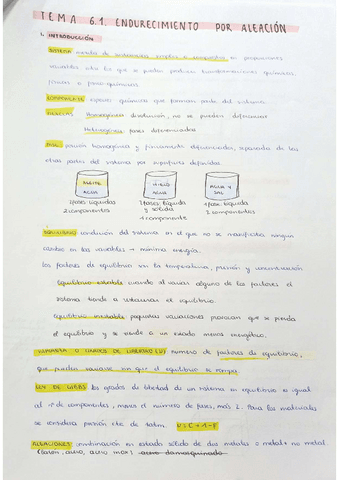 TEMA 6.1. ENDURECIMIENTO POR ALEACIÓN
1. INTRODUCCIÓN
SISTEMA mezcla de sustancias, simples o compuestos en proporciones
variables entre los que se pueden producir transformaciones químicas,
físicas o físico-químicas
COMPONENTE especie química que forman parte del sistema
MEZCLAS Homogénea: disolución, no se pueden diferenciar
Heterogénea: fases diferenciadas
FASE porción homogénea y físicamente diferenciada, separada de las
otras partes del sistema por superficies definidas.
ACEITE
AGUA
HIELO
AGUA
AGUA Y
SAL
2 fases líquida
2 componentes
1 fase líquida
y sólida
1 componente
1 fase líquida
2 componentes
EQUILIBRIO condición del sistema en el que no se manifiesta ningún
cambio en las variables → mínima energía.
Los factores de equilibrio son la temperatura, presión y concentración
Equilibrio estable cuando al variar alguno de los factores el
sistema tiende a restaurar el equilibrio.
Equilibrio inestable pequeñas variaciones provocan que se pierda
el equilibrio y se tiende a un estado menos energético.
VARIANZA O GRADOS DE LIBERTAD (V) número de factores de equilibrio,
que pueden variarse sin que el equilibrio se rompa.
LEY DE GIBBS los grados de libertad de un sistema en equilibrio es igual
al nº de componentes, menos el número de fases, más 2. Para los materiales
se considera presión cte de 1 atm. V = C + 1 - F
ALEACIONES combinación en estado sólido de dos metales o metal + no metal
(latón, acero, acero inox) acero damasquinado